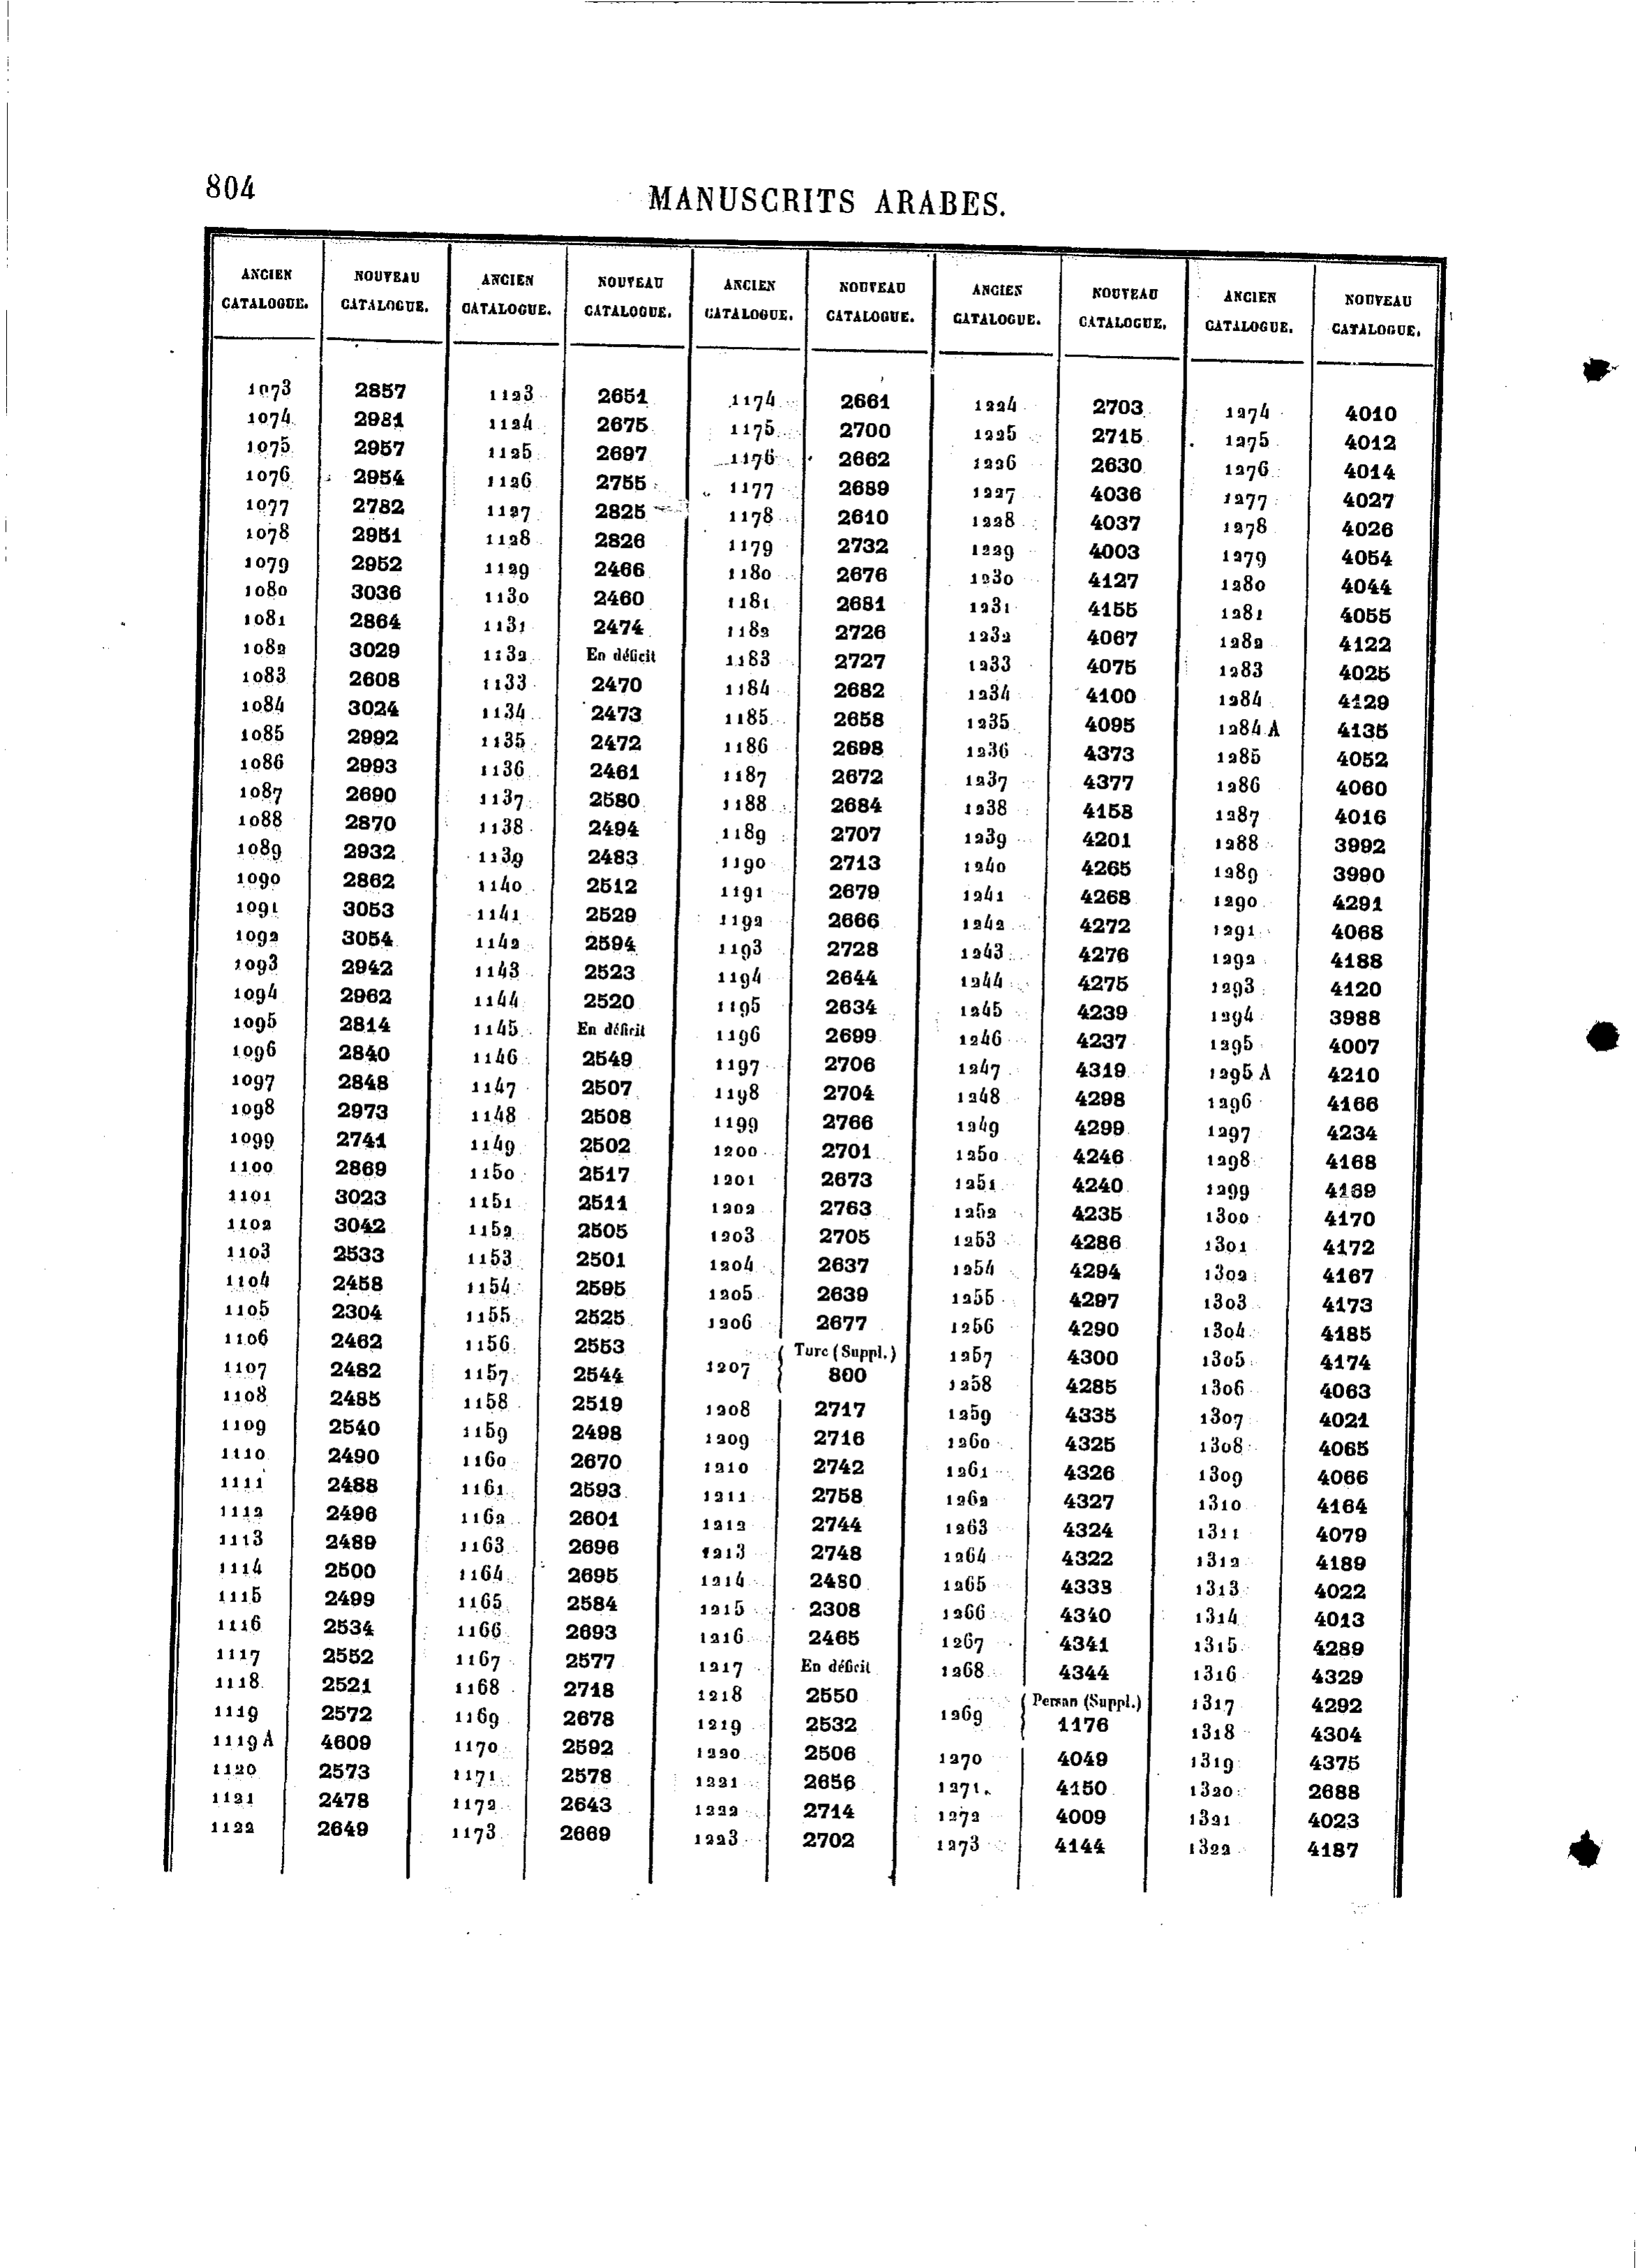 804
MANUSCRITS ARABES.
ANCIEN CATALOGUE. NOUVEAU CATALOGUE. ANCIEN CATALOGUE. NOUVEAU CATALOGUE. ANCIEN CATALOGUE. NOUVEAU CATALOGUE. ANCIEN CATALOGUE. NOUVEAU CATALOGUE. ANCIEN CATALOGUE. NOUVEAU CATALOGUE.
1073 2857 1123 2651 1174 2661 1224 2703 1274 4010
1074 2981 1124 2675 1175 2700 1225 2715 1275 4012
1075 2957 1125 2697 1176 2662 1226 2630 1276 4014
1076 2954 1126 2755 1177 2689 1227 4036 1277 4027
1077 2782 1127 2825 1178 2610 1228 4037 1278 4026
1078 2951 1128 2826 1179 2732 1229 4003 1279 4054
1079 2952 1129 2466 1180 2676 1230 4127 1280 4044
1080 3036 1130 2460 1181 2681 1231 4155 1281 4055
1081 2864 1131 2474 1182 2726 1232 4067 1282 4122
1082 3029 1132 En déficit 1183 2727 1233 4075 1283 4025
1083 2608 1133 2470 1184 2682 1234 4100 1284 4129
1084 3024 1134 2473 1185 2658 1235 4095 1284 A 4135
1085 2992 1135 2472 1186 2698 1236 4373 1285 4052
1086 2993 1136 2461 1187 2672 1237 4377 1286 4060
1087 2690 1137 2580 1188 2684 1238 4158 1287 4016
1088 2870 1138 2494 1189 2707 1239 4201 1288 3992
1089 2932 1139 2483 1190 2713 1240 4265 1289 3990
1090 2862 1140 2512 1191 2679 1241 4268 1290 4291
1091 3053 1141 2529 1192 2666 1242 4272 1291 4068
1092 3054 1142 2594 1193 2728 1243 4276 1292 4188
1093 2942 1143 2523 1194 2644 1244 4275 1293 4120
1094 2962 1144 2520 1195 2634 1245 4239 1294 3988
1095 2814 1145 En déficit 1196 2699 1246 4237 1295 4007
1096 2840 1146 2549 1197 2706 1247 4319 1295 A 4210
1097 2848 1147 2507 1198 2704 1248 4298 1296 4166
1098 2973 1148 2508 1199 2766 1249 4299 1297 4234
1099 2741 1149 2502 1200 2701 1250 4246 1298 4168
1100 2869 1150 2517 1201 2673 1251 4240 1299 4169
1101 3023 1151 2511 1202 2763 1252 4235 1300 4170
1102 3042 1152 2505 1203 2705 1253 4286 1301 4172
1103 2533 1153 2501 1204 2637 1254 4294 1302 4167
1104 2458 1154 2595 1205 2639 1255 4297 1303 4173
1105 2304 1155 2525 1206 2677 1256 4290 1304 4185
1106 2462 1156 2553 1207 Turc (Suppl.) 1257 4300 1305 4174
1107 2482 1157 2544 800 1258 4285 1306 4063
1108 2485 1158 2519 1208 2717 1259 4335 1307 4021
1109 2540 1159 2498 1209 2716 1260 4325 1308 4065
1110 2490 1160 2670 1210 2742 1261 4326 1309 4066
1111 2488 1161 2593 1211 2758 1262 4327 1310 4164
1112 2496 1162 2601 1212 2744 1263 4324 1311 4079
1113 2489 1163 2696 1213 2748 1264 4322 1312 4189
1114 2500 1164 2695 1214 2480 1265 4333 1313 4022
1115 2499 1165 2584 1215 2308 1266 4340 1314 4013
1116 2534 1166 2693 1216 2465 1267 4341 1315 4289
1117 2552 1167 2577 1217 En déficit 1268 4344 1316 4329
1118 2521 1168 2718 1218 2550 1269 Persan (Suppl.) 1317 4292
1119 2572 1169 2678 1219 2532 1176 1318 4304
1119 A 4609 1170 2592 1220 2506 1270 4049 1319 4375
1120 2573 1171 2578 1221 2656 1271 4150 1320 2688
1121 2478 1172 2643 1222 2714 1272 4009 1321 4023
1122 2649 1173 2669 1223 2702 1273 4144 1322 4187